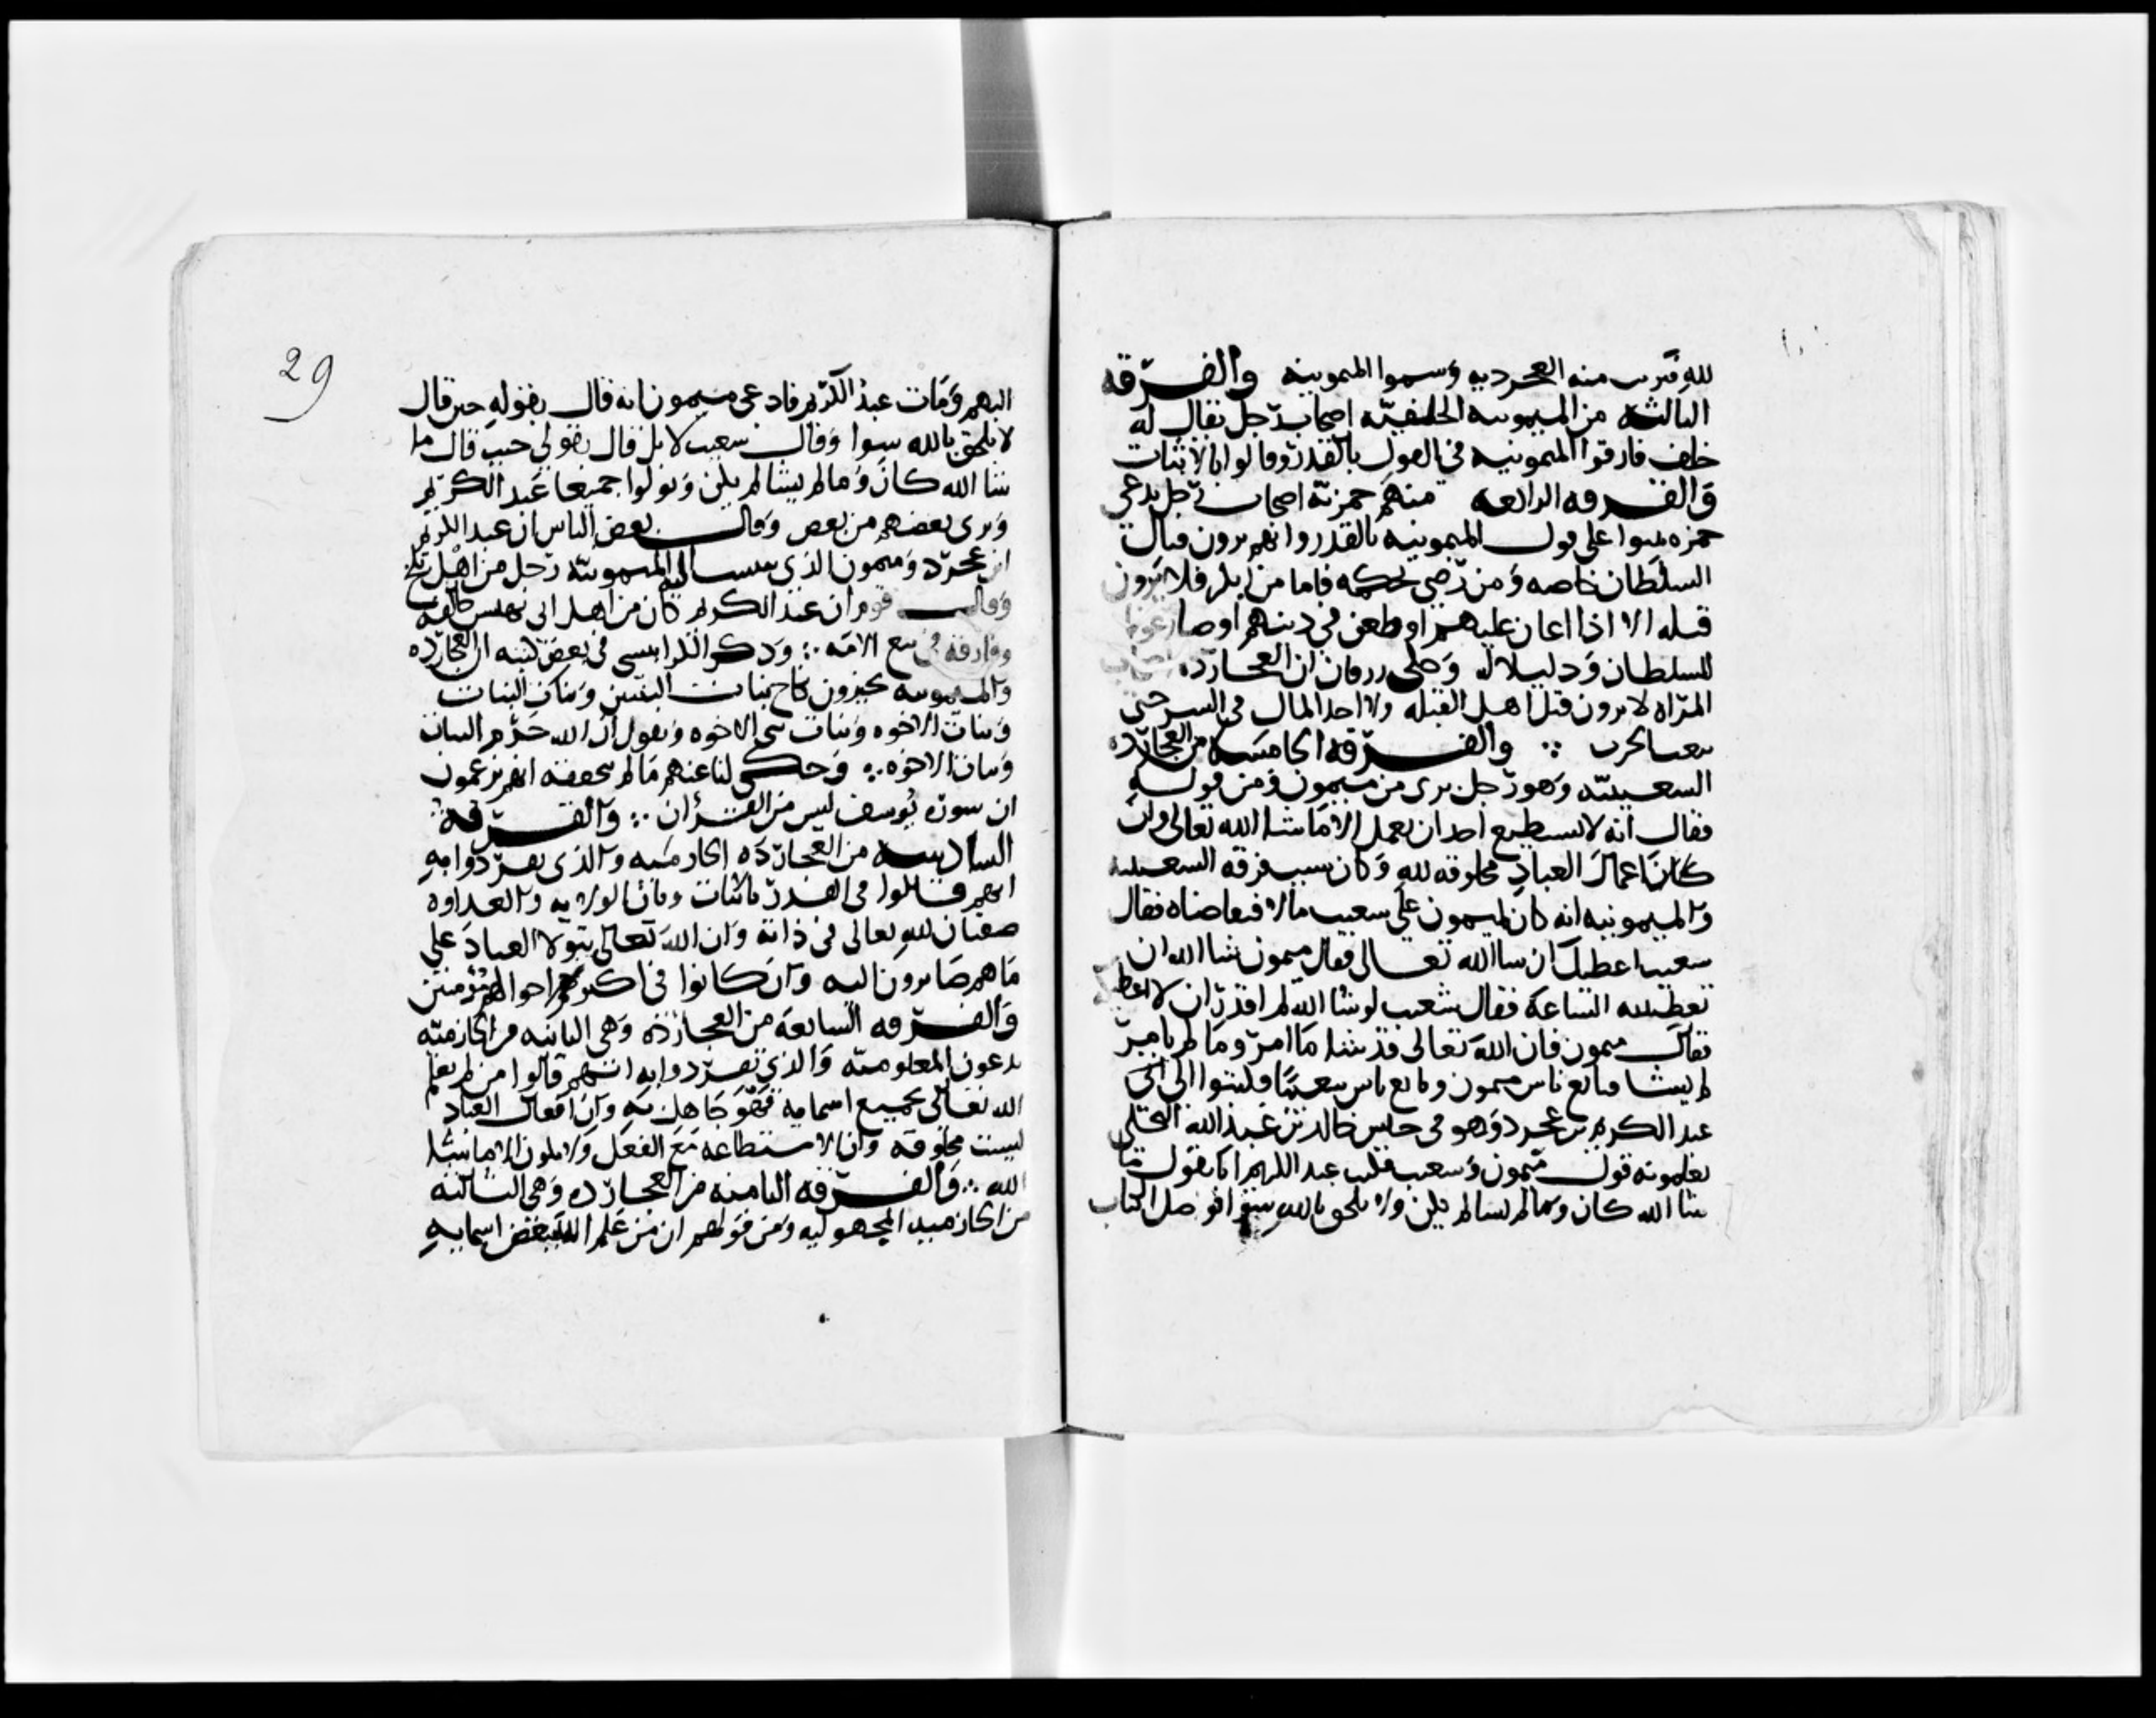 لله فبريت منه العجردية وسموا الميمونية والفرقة
الثالثة من الميمونية الخلفية اصحاب رجل يقال له
خلف فارقوا الميمونية في القول بالقدر وقالوا بالاثبات
والفرقة الرابعة منهم حمزية اصحاب رجل يدعى
حمزه ثبتوا على قول الميمونية بالقدر وانهم يرون قتال
السلطان خاصه ومن رضي بحكمه فاما من انكر فلا يرون
قتله الا اذا اعان عليهم او طعن في دينهم او صار عونا
للسلطان ودليلا له وحكى زرقان ان العجاردة اصحاب
المراه لا يرون قتل اهل القبله ولا اخذ المال في السر حتى
يبعث الحرب والفرقة الخامسة من العجاردة
السعيبية وهو رجل برى من ميمون ومن قوله
فقال انه لا يستطيع احد ان يعمل الا ما شا الله تعالى وان
كان اعمال العباد مخلوقه لله وكان سبب فرقه السعيبية
والميمونية انه كان لميمون على سعيب مالا فتقاضاه فقال
سعيب اعطيك ان شا الله تعالى فقال ميمون شا الله ان
تعطينيه الساعة فقال شعيب لو شا الله لم اقدر ان لا اعطيكه
فقال ميمون فان الله تعالى قد شا ما امر وما لم يامر
لم يشا فتابع ناس ميمون وتابع ناس سعيبا فكتبوا الى
عبد الكريم بن عجرد وهو في حبس خالد بن عبد الله البجلي
يعلمونه قول ميمون وسعيب فكتب عبد الكريم انا نقول ما
شا الله كان وما لم يشا لم يكن ولا نلحق بالله سوا فوصل الكتاب
29
اليهم ومات عبد الكريم فادعى ميمون انه قال بقوله حين قال
لا نلحق بالله سوا وقال سعيب لا بل قال بقولي حيث قال ما
شا الله كان وما لم يشا لم يكن وتولوا جميعا عبد الكريم
وبرى بعضهم من بعض وقال بعض الناس ان عبد الكريم
ابن عجرد وميمون الذي ينسب اليه الميمونية رجل من اهل بلخ
وقال قوم ان عبد الكريم كان من اصحاب ابي بيهس خالفه
وفارقه في بيع الامه وذكر الكرابيسي في بعض كتبه ان العجاردة
والميمونية يجيزون نكاح بنات البنين وبنات البنات
وبنات الاخوه وبنات بني الاخوه ويقول ان الله حرم البنات
وبنات الاخوه وحكى لنا عنهم ما لم نحققه انهم يزعمون
ان سورة يوسف ليس من القران والفرقة
السادسة من العجاردة الخازمية والذي تفردوا به
انهم قالوا في القدر بالاثبات وبان الولاية والعداوه
صفتان لله تعالى في ذاته وان الله تعالى يتولا العباد على
ما هم صايرون اليه وان كانوا في اكثر احوالهم مؤمنين
والفرقة السابعة من العجاردة وهى الثانية من الخازمية
يدعون المعلومية والذي تفردوا به انهم قالوا من لم يعلم
الله تعالى بجميع اسمايه فهو جاهل به وان افعال العباد
ليست مخلوقة وان الاستطاعه مع الفعل ولا يكون الا ما شا
الله والفرقة الثامنة من العجاردة وهى الثالثة
من الخازمية المجهولية ومن قولهم ان من علم الله ببعض اسمايه